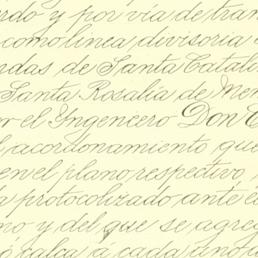 rdo y por via de tran
como linea divisoria
ndas de Santa Catali
Santa Rosalia de Men
n el Ingeneero Don E
l acordonamiento que
en el plano respectivo,
a protocolizado ante e
no y del que se agre
ó calca á cada uno